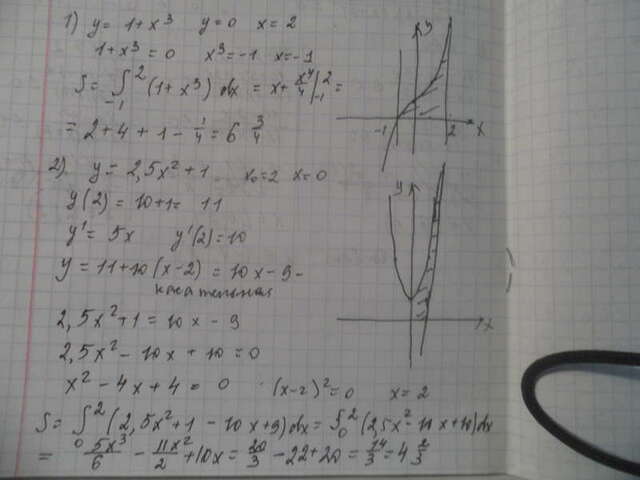 1) y = 1+x³ y=0 x=2
1+x³=0 x³=-1 x=-1
S = ∫₋₁² (1+x³) dx = x + x⁴/4 |₋₁² =
= 2+4+1-1/4 = 6 3/4
y
-1 2 x
2) y = 2,5x²+1 x₀=2 x=0
y(2) = 10+1= 11
y' = 5x y'(2)=10
y = 11+10(x-2) = 10x-9 -
касательная
y
x
2,5x²+1 = 10x - 9
2,5x² - 10x + 10 = 0
x² - 4x + 4 = 0 (x-2)²=0 x=2
S = ∫₀² (2,5x²+1 - 10x+9) dx = ∫₀² (2,5x² - 11x+10) dx
= 5x³/6 - 11x²/2 + 10x = 20/3 - 22+20 = 14/3 = 4 2/3